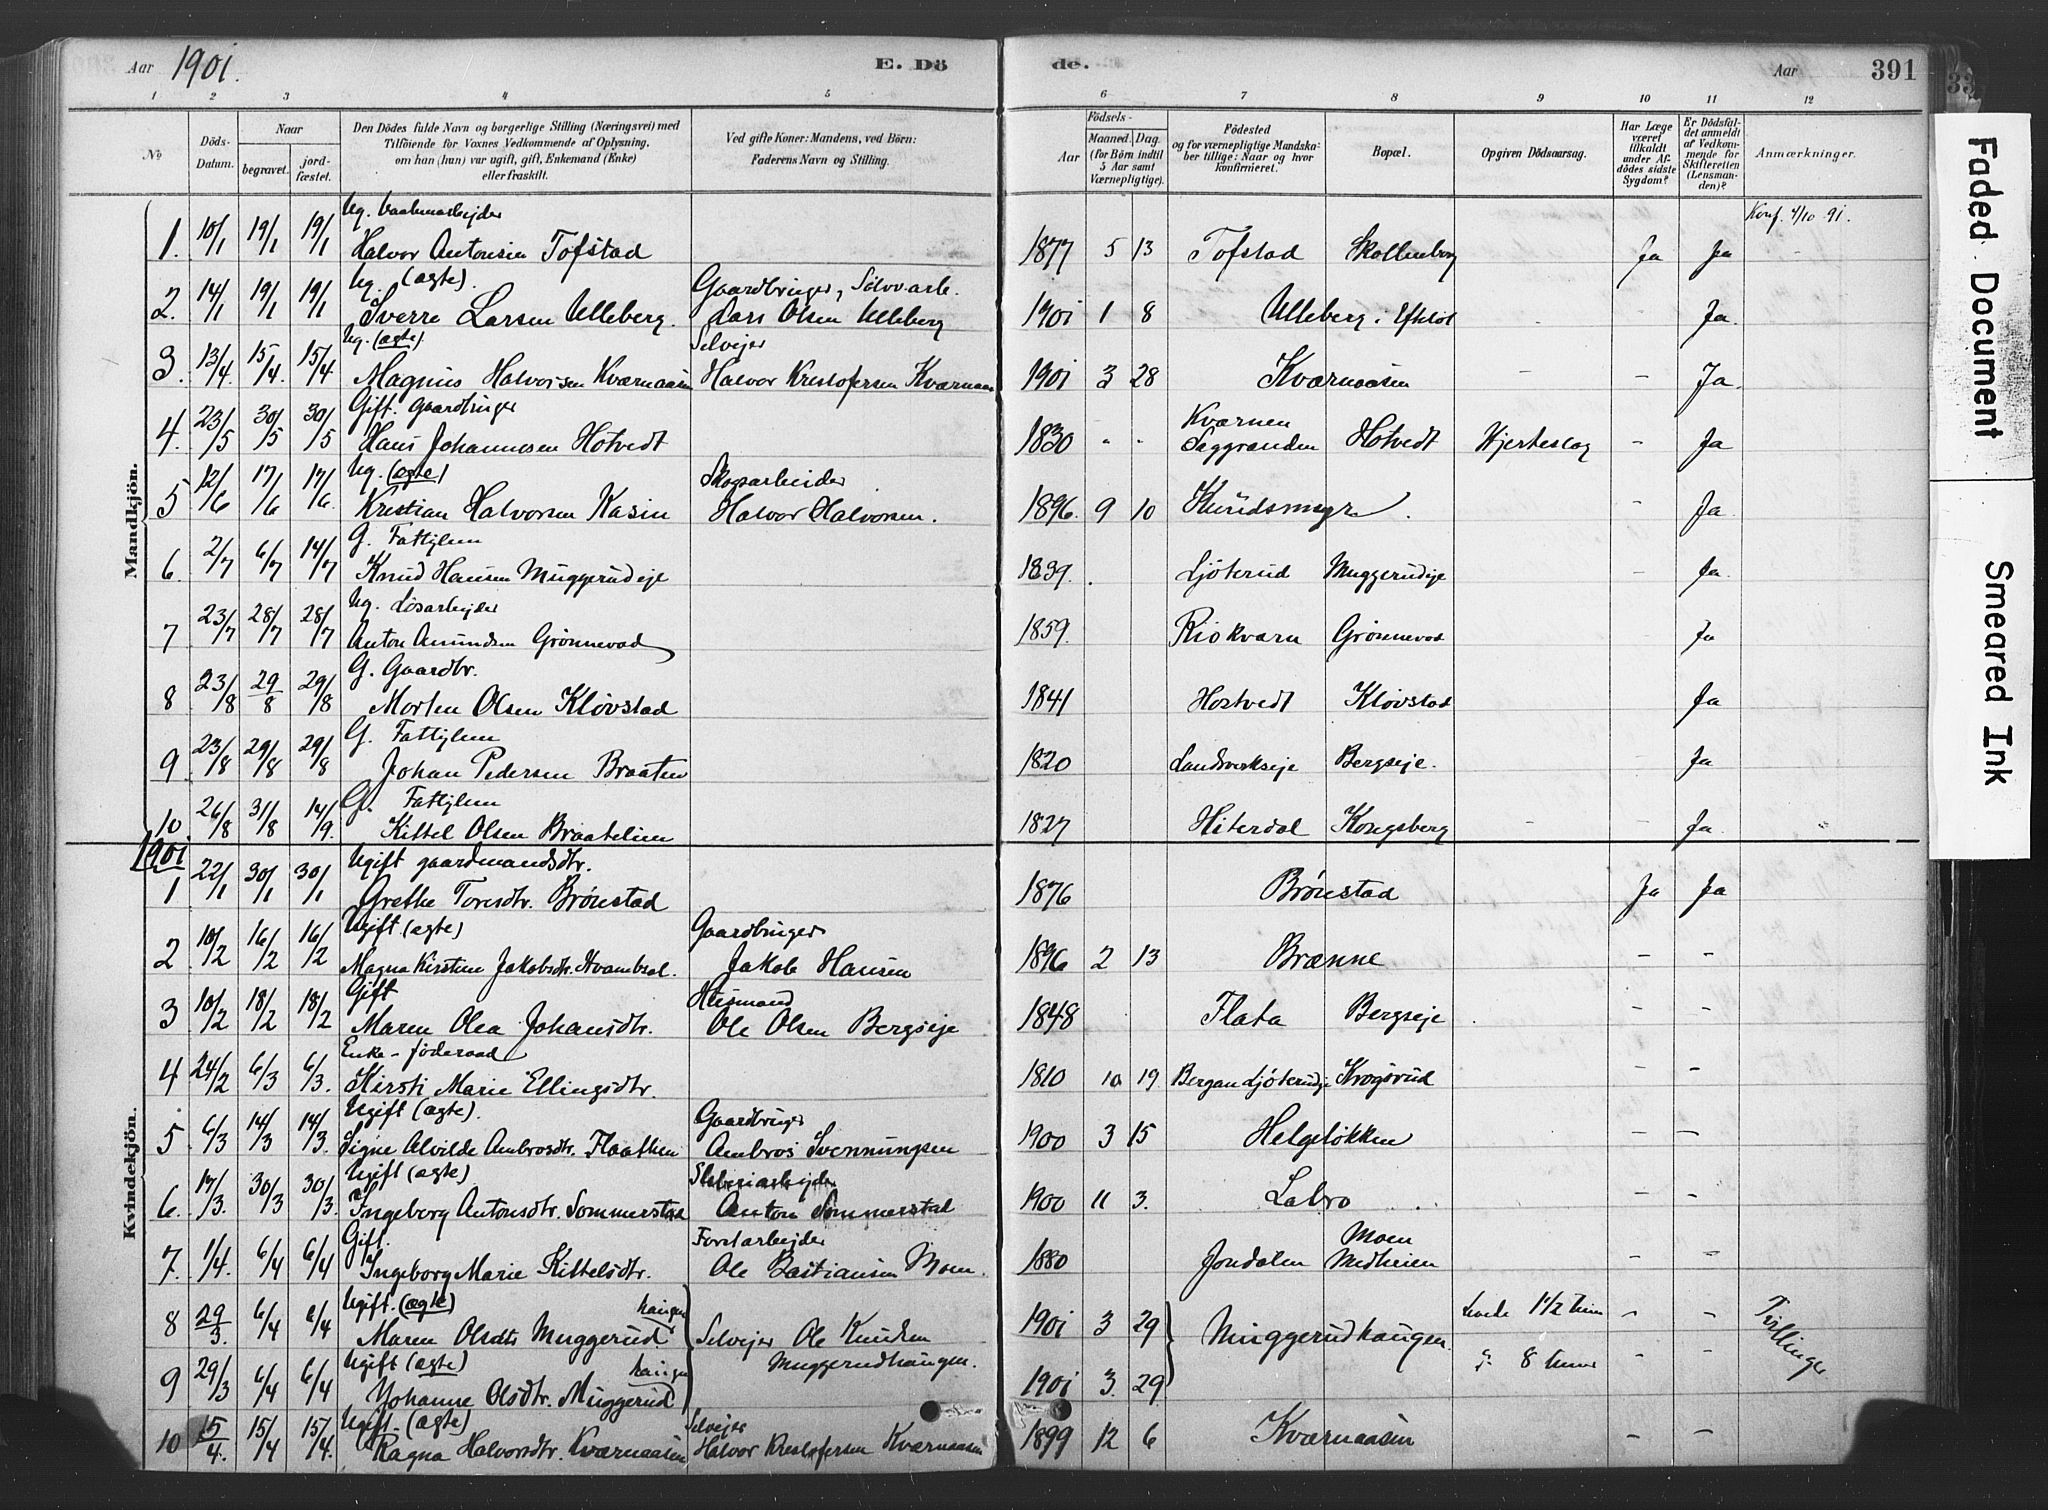 Aar 1901. E. Dö de. Aar 391
1 2 3 4 5 6 7 8 9 10 11 12
№ Döds-Datum. Naar begravet. jord-fæstet. Den Dödes fulde Navn og borgerlige Stilling (Næringsvei) med Tilföiende for Voxnes Vedkommende af Oplysning, om han (hun) var ugift, gift, Enkemand (Enke) eller fraskilt. Ved gifte Koner: Mandens, ved Börn: Faderens Navn og Stilling. Födsels- Aar Maaned. Dag. (for Börn indtil 5 Aar samt Værnepligtige). Födested og for værnepligtige Mandska-ber tillige: Naar og hvor konfirmeret. Bopæl. Opgiven Dödsaarsag. Har Læge været tilkaldt under Af-dödes sidste Sygdom? Er Dödsfal-det anmeldt af Vedkom-mende for Skifteretten (Lensman-den)? Anmærkninger.
Mandkjön.
Ug. Konf. 4/10 91.
1. 10/1 19/1 19/1 Halvor Antonsen Tofstad 1877 5 13 Tofstad Skollenborg Ja Ja
Ug. (ægte). Gaardbruger, Sölvarb.
2. 14/1 19/1 19/1 Sverre Larsen Ulleberg. Lars Olsen Ulleberg 1901 1 8 Ulleberg i Efteløt Ja.
Ug. (ægte) Selvejer
3. 13/4. 15/4. 15/4 Magnus Halvorsen Kværnaasen Halvor Kristofersen Kværnaas 1901 3 28 Kværnaasen - - Ja.
Gift. Gaardbruger Kværnen
4. 23/5 30/5 30/5 Hans Johannesen Hotvedt 1830 " " Saggranden Hotvedt Hjerteslag - Ja
Ug. (ægte) Skogsarbeider
5 12/6 17/6 17/6. Kristian Halvorsen Kasin Halvor Halvorsen. 1896. 9 10 Knudsmyr. - Ja
G. Fattiglem
6. 2/7 6/7 14/7 Knud Hansen Muggerudeje 1839. Ljøterud Muggerudeje - Ja.
Ug. Løsarbejder
7 23/7 28/7 28/7 Anton Amundsen Grønnevad 1859. Kværn Grønnevad Ja
G. Gaardbr.
8 23/8 29/8 29/8 Morten Olsen Kløvstad 1841 Hostvedt Kløvstad Ja
G. Fattiglem
9 23/8 29/8 29/8 Johan Pedersen Braaten 1820 Landsverkseje Bergseje. Ja
G. Fattiglem
10 26/8 31/8 14/9. Kittel Olsen Braatelien 1827 Hiterdal Kongsberg - - Ja "
1901
Kvindekjön.
Ugift gaardmandsdtr.
1 22/1 30/1 30/1 Grethe Toresdtr. Brønstad 1876 Brønstad Ja Ja
Ugift (ægte) Gaardbruger
2 10/2 16/2 16/2 Magna Kirstine Jakobsdtr. Jakob Hansen 1896 2 13 Brænne - -
Gift Husmand
3 10/2 18/2 18/2 Maren Olea Johansdtr. Ole Olsen Bergseje 1848 Flata Bergseje - -
Enke - føderaad
4 24/2 6/3 6/3. Kirsti Marie Ellingsdtr. 1810 10 19 Bergan Ljøterudeje Krogsrud - -
Ugift (ægte). Gaardbruger
5 6/3 14/3 14/3. Signe Alvilde Ambrosdtr. Flaathen Ambros Svennungsen 1900 3 15 Helgeløkken - -
Ugift (ægte)
6. 17/3. 30/3 30/3. Ingeborg Antonsdtr. Sommerstad Anton Sommerstad 1900 11 3. Labro - -
Gift. Forstarbejder Moen
7. 1/4. 6/4 6/4 Ingeborg Marie Kittelsdtr. Ole Bastiansen Moen. 1880 Jondalen Medheien - -
Ugift. (ægte) haugen
8 29/3. 6/4 6/4 Maren Olsdtr Muggerud Selvejer Ole Knudsen 1901 3 29 Muggerudhaugen levede 1 1/2 time - - Tvillinger
Ugift (ægte) haugen Muggerudhaugen.
9 29/3 6/4 6/4 Johanne Olsdtr. Muggerud 1901 3. 29 " 8 timer - -
Ugift. (ægte) Selvejer
10 15/4. 15/4 15/4. Ragna Halvorsdtr. Kværnaasen Halvor Kristofersen Kværnaasen 1899 12 6 Kværnaasen - -
Faded Document
Smeared Ink